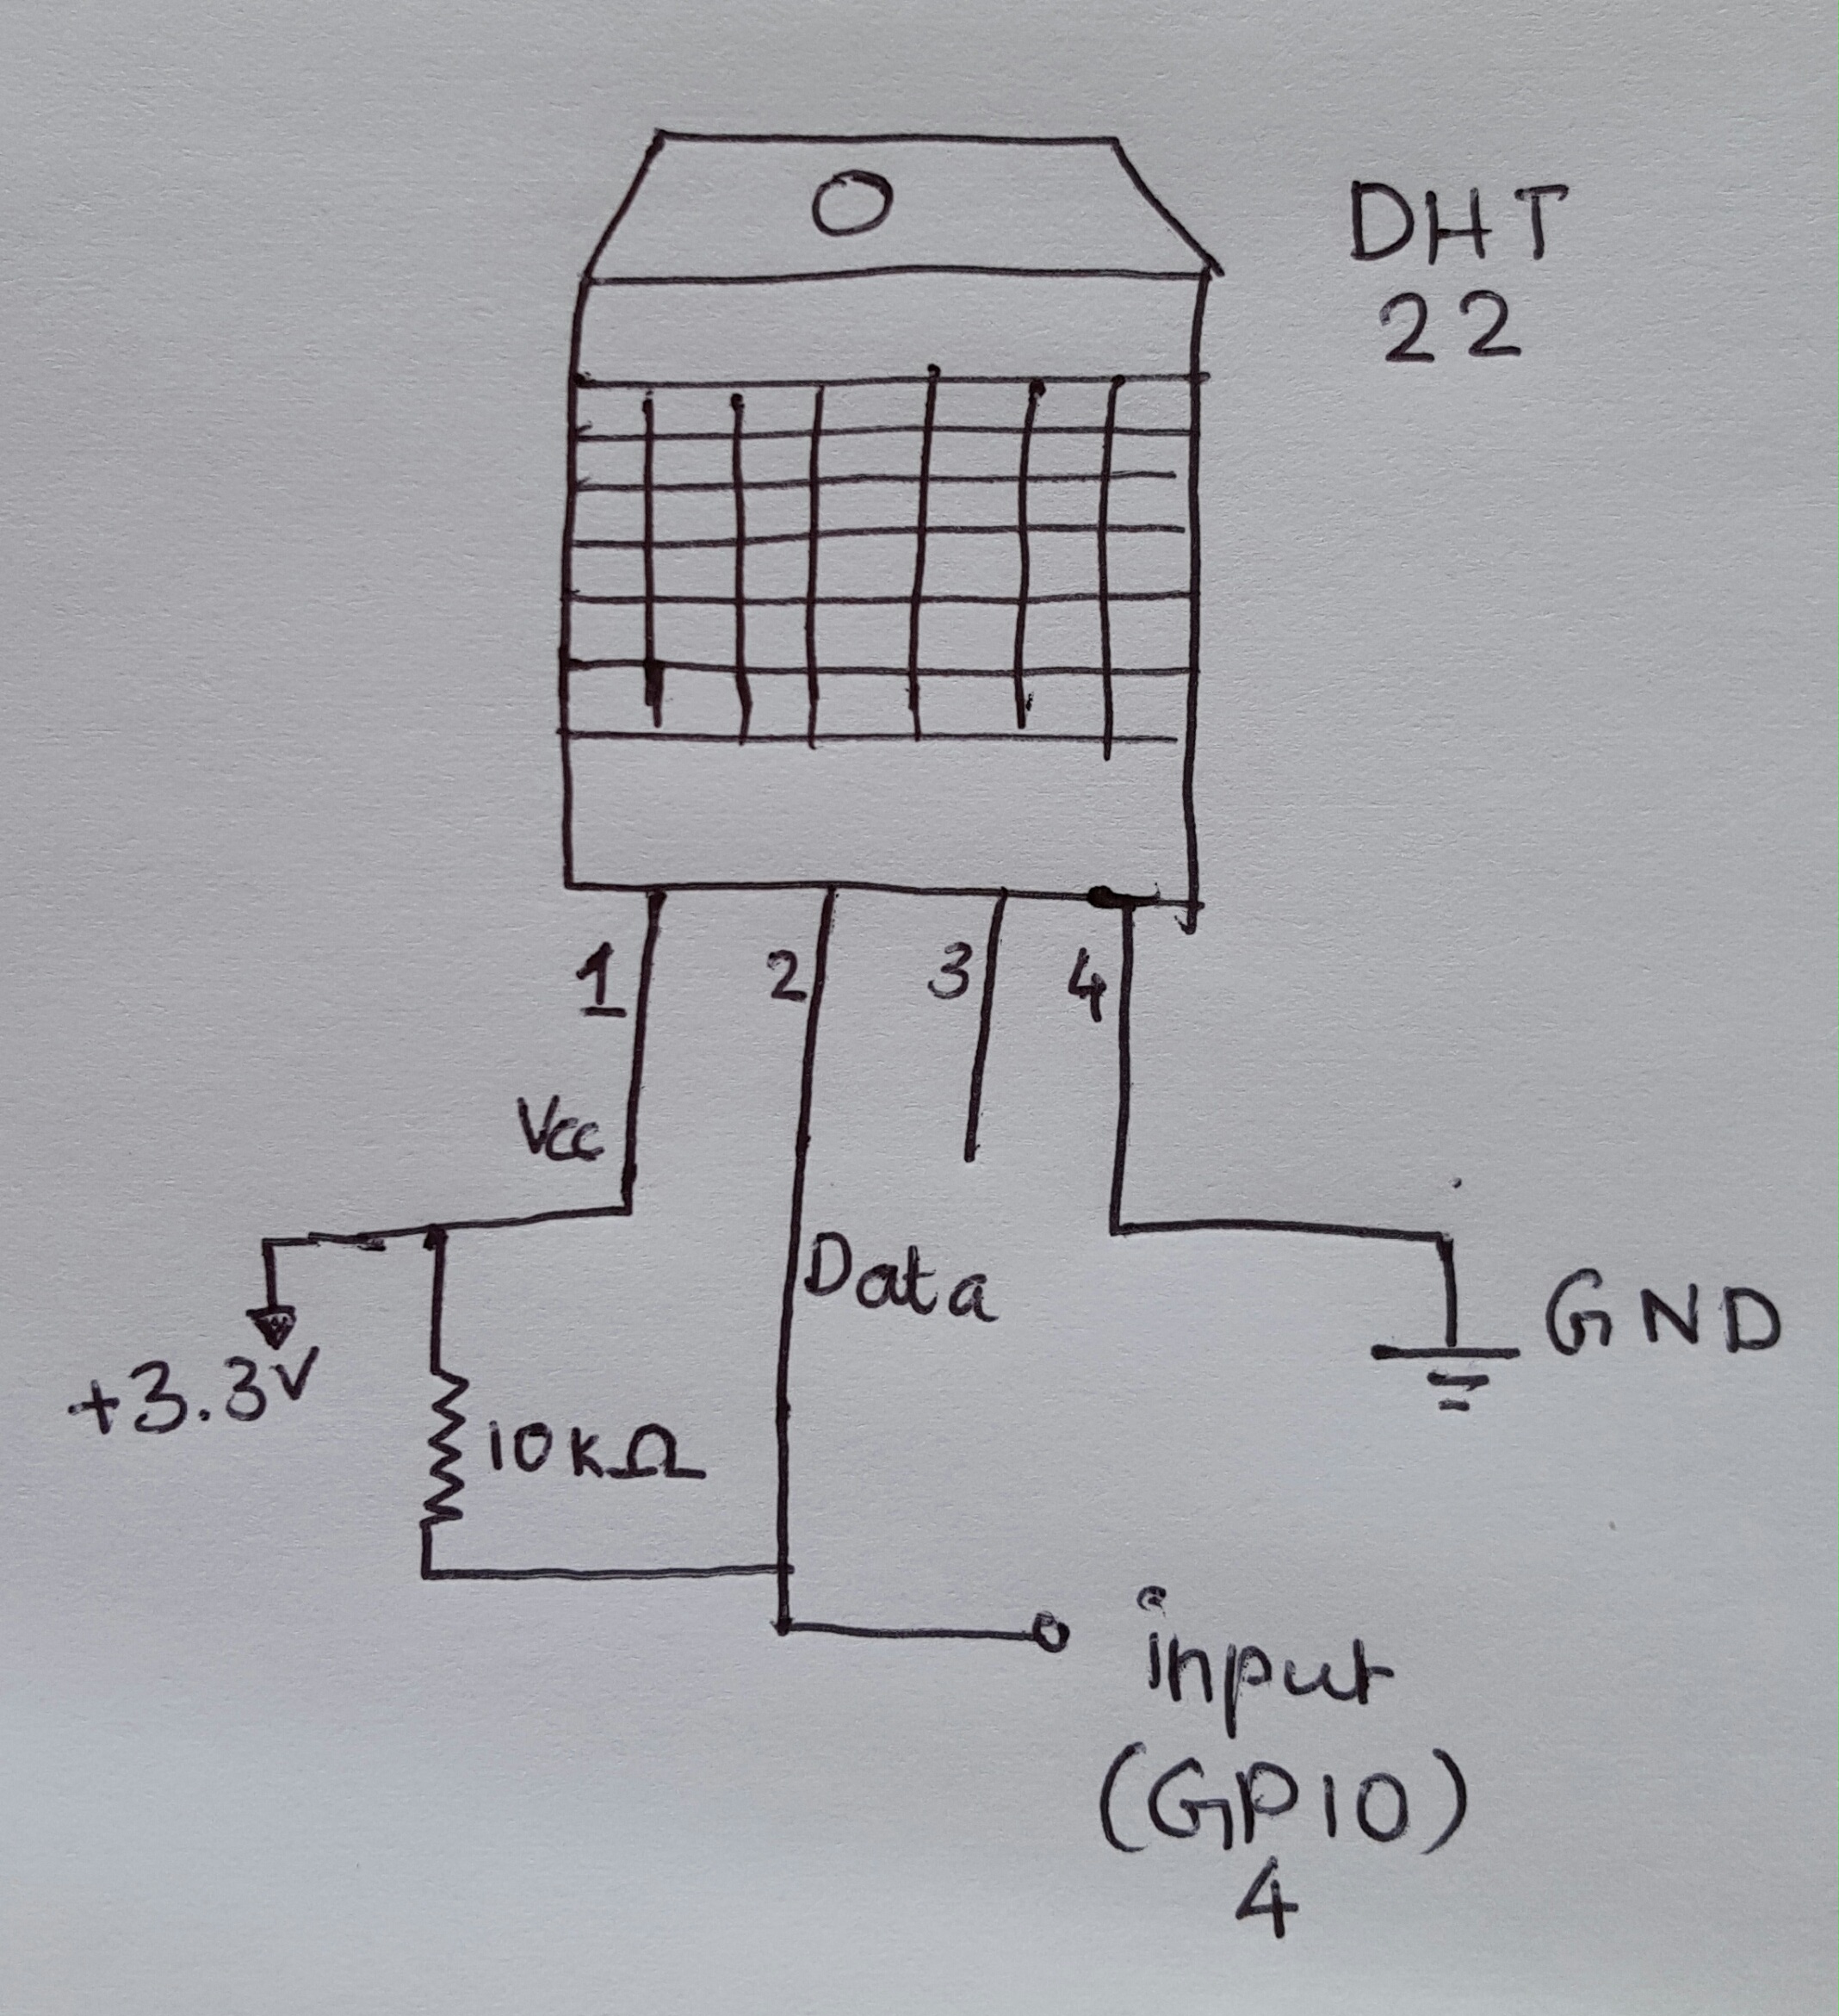 DHT
22
1
2
3
4
Vcc
Data
+3.3V
10KΩ
GND
input
(GPIO)
4